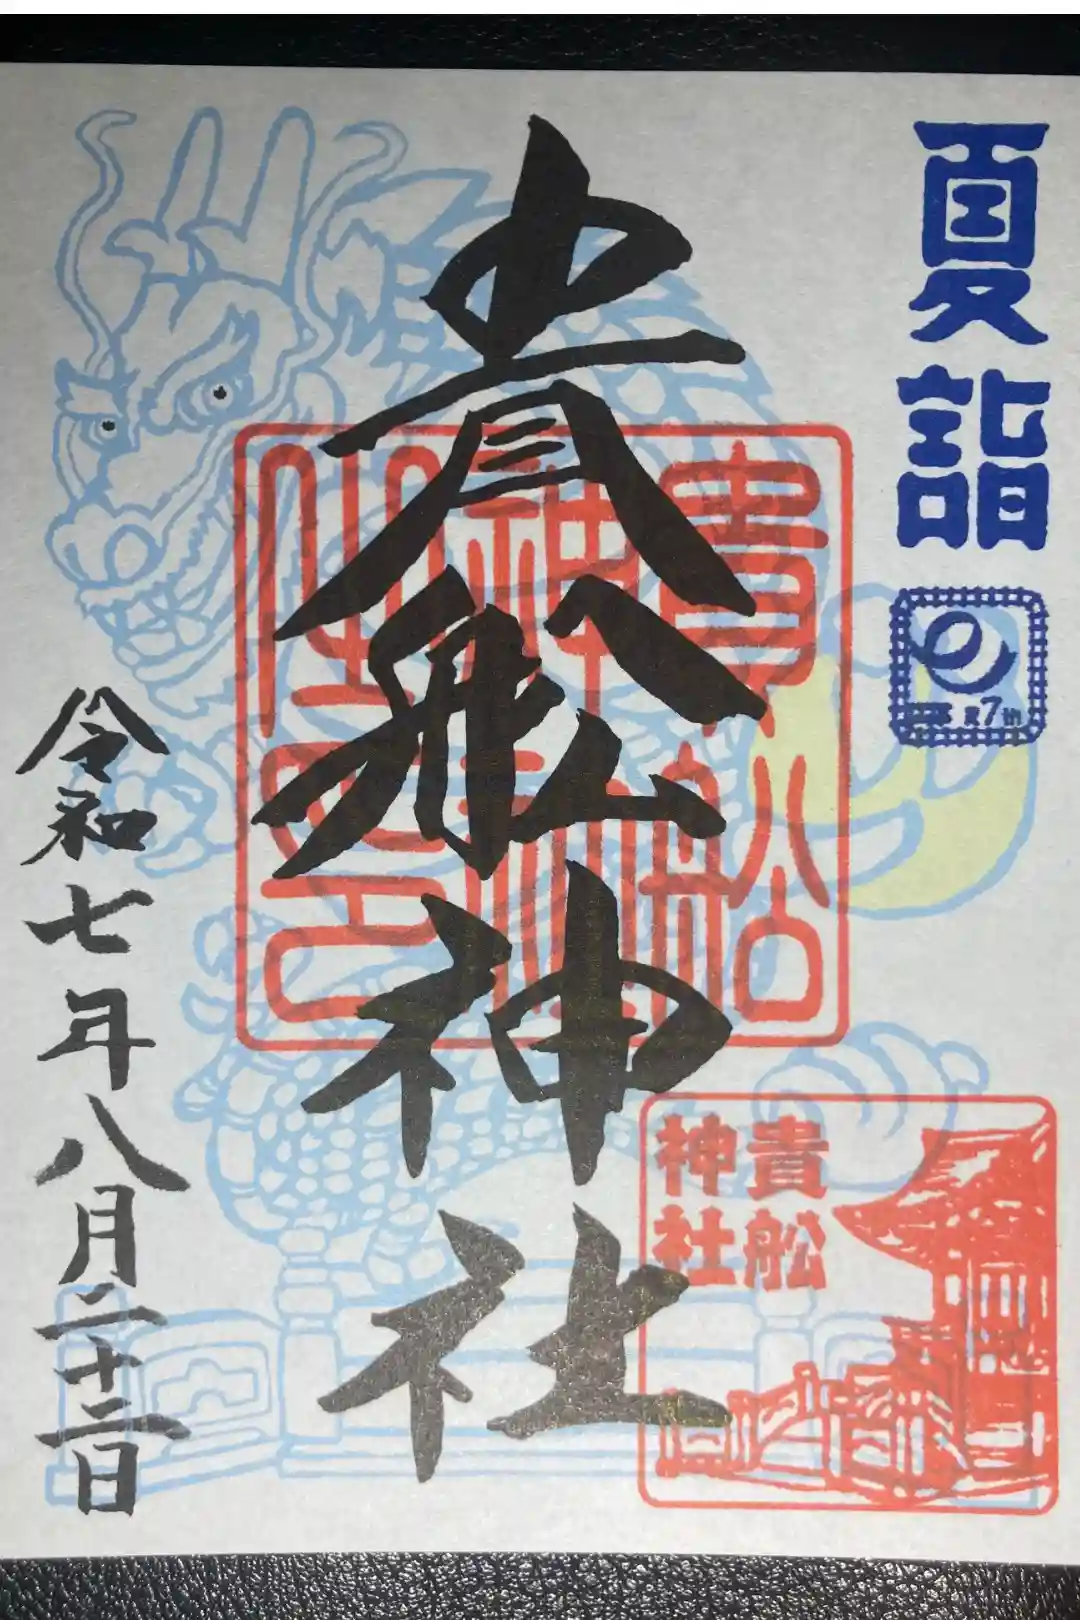 夏詣
貴舩神社
貴舩
神社
之印
貴舩
神社
令和七年八月二十二日